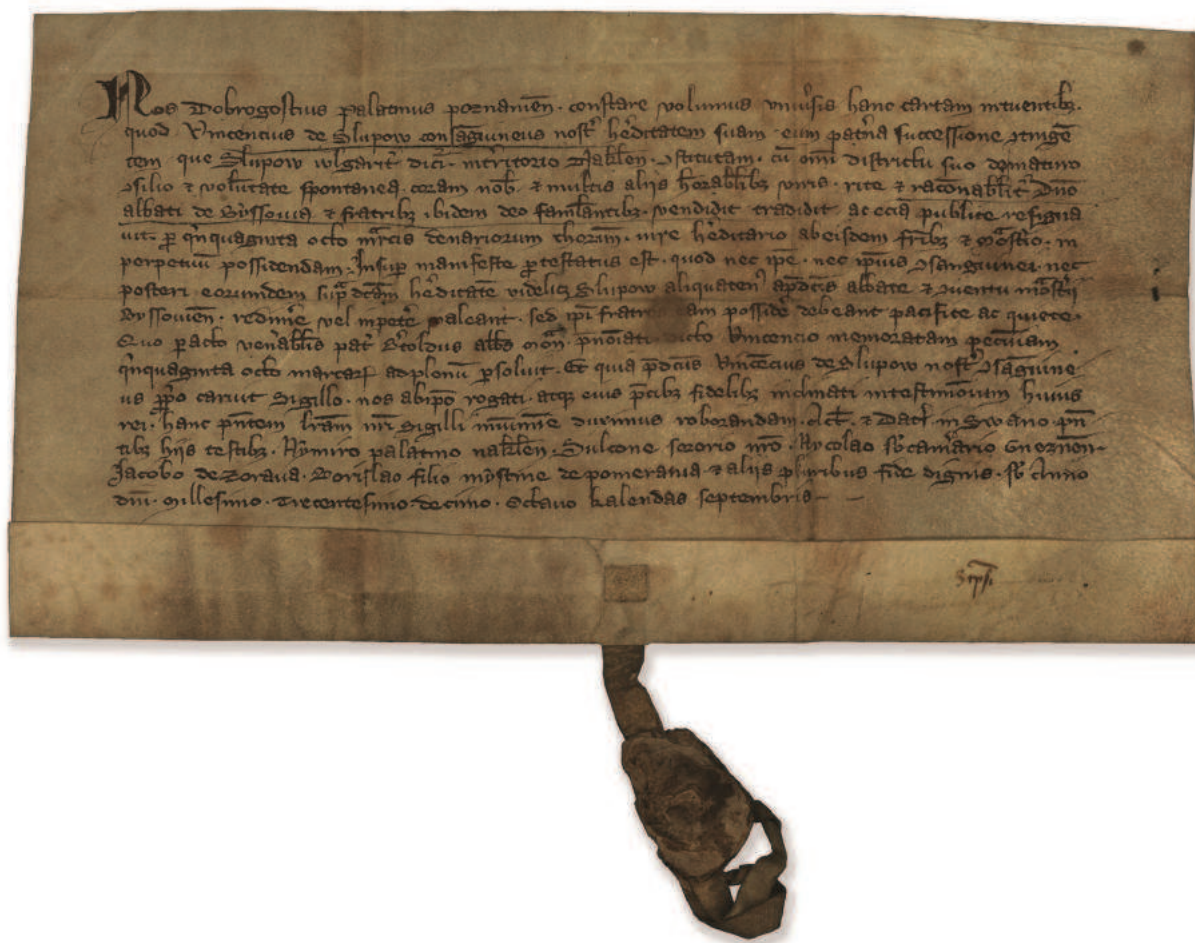 Nos Dobrogostius palatinus poznanien̄. constare volumus univ͛sis hanc cartam intuentibꝫ.
quod Vincencius de Slupow consāguineus nost͛ h͛editatem suam eum pat͛na successione ꝯtingē
tem que Slupow wlgarit͛ dici͛. in t͛ritorio Naklen̄. ꝯstitutam. cū om̄i districtu suo
ꝯsilio & volūtate spontanea. coram nob̄. & multis aliis h͛orabl̄ibꝫ viris. rite & racōnabl̄it͛ Dn̄o
abbati de Byssovia & fratribꝫ ibidem deo faml̄antibꝫ. vendidit tradidit ac eciā publice resigna
vit. ꝑ q͛nquaginta octo m̄rcis denariorum thorūn̄. iure h͛editario ab eisdem fr̄ibꝫ & mōst͛io. in
perpetuū possidendam. Insuꝑ manifeste ꝓtestatus est. quod nec ip̄e. nec ip̄ius ꝯsanguinei. nec
posteri eorundem sup̄ dc̄am h͛editatē videlicꝫ Slupow aliquaten͛ a p̄dc̄is abbate & ꝯventu mōst͛ii
Byssovien̄. redim͛e vel inpet͛e valeant. sed ip̄i fratres eam possid͛e debeant pacifice ac quiete.
Quo peracto ven͛abl̄is pat͛ abb̄s p̄nōiati. dicto Vincencio memoratam pecūiam
q͛nquaginta octo marcarꝝ ad plenū ꝑsolvit. Et quia p̄dc̄us Vincēcius de Slupow nost͛ ꝯsāguine
us pp̄o caruit Sigillo. nos ab ip̄o rogati. atqꝫ eius p̄cibꝫ fidelibꝫ inclinati in testimōium huius
rei. hanc p̄ntem lr̄am nr̄i Sigilli mūimine duximus roborandam. Act̄. & Dat͛. in Swano. p̄n
tibꝫ hiis testibꝫ. palatino naklen̄. Sulcone sororio nr̄o. Nycolao sb̄cam͛ario Gneznen̄.
Jacobo de Zorava. Borislao filio mystine de pomerania & aliis pluribus fide dignis. sb̄ Anno
dn̄i. Millesimo. Trecentesimo. decimo. Octavo kalendas septembris